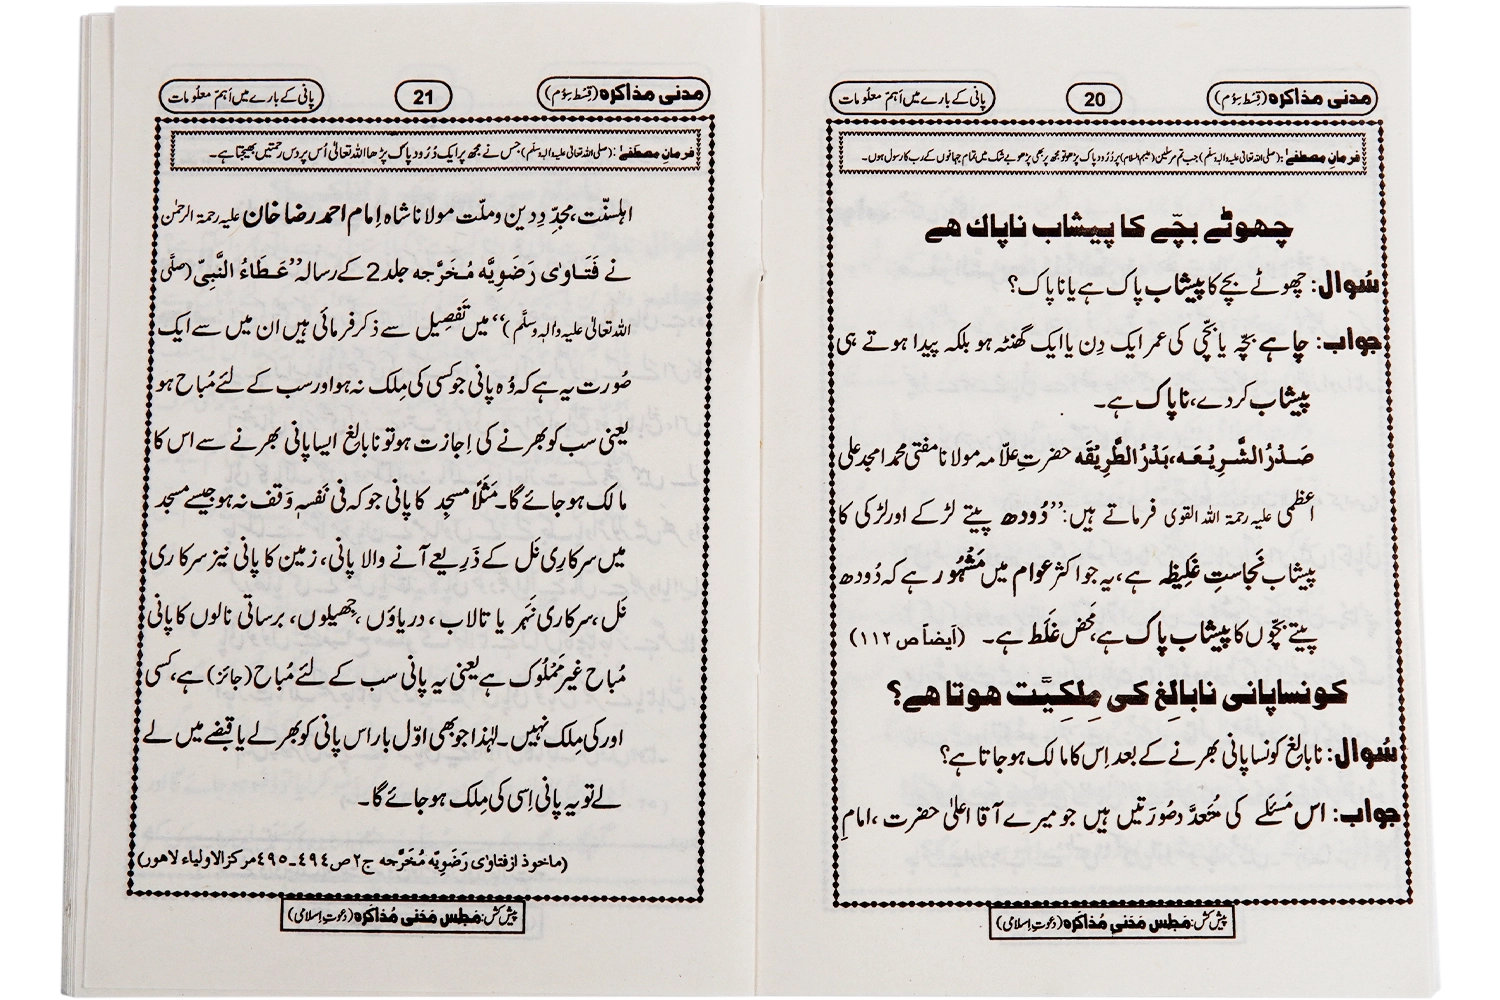 مدنی مذاکرہ (قِسْط سِوُم)
20
پانی کے بارے میں اَہم معلُومات
فرمانِ مصطَفےٰ: (صلی اللہ تعالیٰ علیہ والہٖ وسلّم) جب تم مرسلین (علیہم السلام) پر دُرُود پاک پڑھو تو مجھ پر بھی پڑھو بے شک میں تمام جہانوں کے رب کا رسول ہوں۔
چھوٹے بچّے کا پیشاب ناپاك ھے
سُوال: چھوٹے بچے کا پیشاب پاک ہے یا ناپاک؟
جواب: چاہے بچّہ یا بچّی کی عمر ایک دِن یا ایک گھنٹہ ہو بلکہ پیدا ہوتے ہی
پیشاب کردے، ناپاک ہے۔
صَدْرُ الشَّرِیْعَہ، بَدْرُ الطَّرِیْقَہ حضرتِ علّامہ مولانا مفتی محمد امجد علی
اعظمی علیہ رحمۃ اللہ القوی فرماتے ہیں: ’’دُودھ پیتے لڑکے اور لڑکی کا
پیشاب نَجاستِ غَلِیظہ ہے، یہ جو اکثر عوام میں مَشْہُور ہے کہ دُودھ
پیتے بچّوں کا پیشاب پاک ہے، مَحض غَلَط ہے۔ (اَیضاً ص ۱۱۲)
کونسا پانی نابالِغ کی مِلکِیَّت ھوتا ھے؟
سُوال: نابالِغ کونسا پانی بھرنے کے بعد اِس کا مالک ہوجاتا ہے؟
جواب: اس مَسْئَلے کی مُتَعدَّد صُورَتیں ہیں جو میرے آقا اعلیٰ حضرت ، امامِ
مدنی مذاکرہ (قِسْط سِوُم)
21
پانی کے بارے میں اَہم معلُومات
فرمانِ مصطَفےٰ: (صلی اللہ تعالیٰ علیہ والہٖ وسلّم) جس نے مجھ پر ایک دُرُود پاک پڑھا اللہ تعالیٰ اُس پر دس رحمتیں بھیجتا ہے۔
اہلسنّت، مجدِّدِ دین و ملّت مولانا شاہ اِمام احمد رضا خان علیہ رحمۃ الرحمٰن
نے فَتَاوٰی رَضَوِیَّہ مُخَرَّجہ جلد 2 کے رسالہ ’’عَطَاءُ النَّبِیّ (صلَّی
اللہ تعالیٰ علیہ واٰلہٖ وسلَّم)‘‘ میں تَفصِیل سے ذکر فرمائی ہیں ان میں سے ایک
صُورت یہ ہے کہ وُہ پانی جو کسی کی مِلک نہ ہو اور سب کے لئے مُباح ہو
یعنی سب کو بھرنے کی اِجازت ہو تو نابالِغ ایسا پانی بھرنے سے اس کا
مالک ہوجائے گا۔ مَثَلًا مسجِد کا پانی جو کہ فی نَفْسِہٖ وَقف نہ ہو جیسے مسجد
میں سرکاری نَل کے ذَرِیعے آنے والا پانی، زمین کا پانی نیز سرکاری
نَل، سرکاری نَہر یا تالاب، دریاؤں، جِھیلوں، برساتی نالوں کا پانی
مُباح غیر مَمْلُوک ہے یعنی یہ پانی سب کے لئے مُباح (جائز) ہے، کسی
اور کی مِلک نہیں۔ لہٰذا جو بھی اوّل بار اس پانی کو بھرلے یا قبضے میں لے
لے تو یہ پانی اِسی کی مِلک ہوجائے گا۔
(ماخوذ از فتاوٰی رَضَوِیّہ مُخَرَّجہ ج ۲ ص ۴۹۴۔۴۹۵ مرکز الاولیاء لاھور)
پیش کش: مَجلِس مَدَنی مُذاکَرہ (دعوتِ اِسلامی)
پیش کش: مَجلِس مَدَنی مُذاکَرہ (دعوتِ اِسلامی)